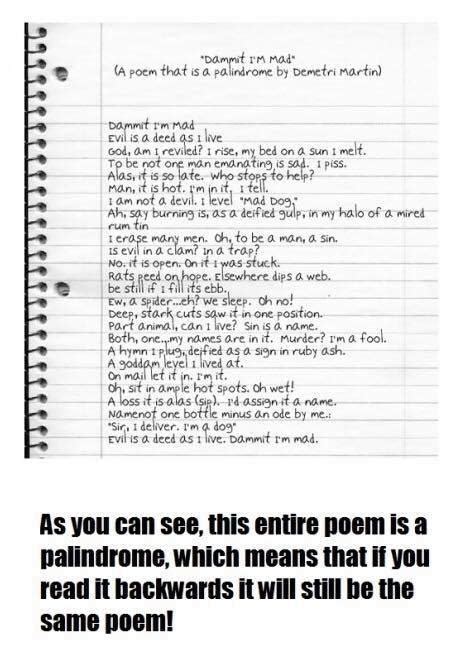 "Dammit I'M Mad"
(A poem that is a palindrome by Demetri Martin)
Dammit I'm Mad
Evil is a deed as I live
God, am I reviled? I rise, my bed on a sun I melt.
To be not one man emanating is sad. I piss.
Alas, it is so late. Who stops to help?
Man, it is hot. I'm in it. I tell.
I am not a devil. I level "Mad Dog."
Ah, say burning is, as a deified gulp, in my halo of a mired
rum tin
I erase many men. Oh, to be a man, a sin.
Is evil in a clam? In a trap?
No. It is open. On it I was stuck.
Rats peed on hope. Elsewhere dips a web.
be still if I fill its ebb.
Ew, a spider...eh? We sleep. Oh no!
Deep, stark cuts saw it in one position.
Part animal, can I live? Sin is a name.
Both, one...my names are in it. Murder? I'm a fool.
A hymn I plug, deified as a sign in ruby ash.
A goddam level I lived at.
On mail let it in. I'm it.
Oh, sit in ample hot spots. Oh wet!
A loss it is alas (sip). I'd assign it a name.
Namenot one bottle minus an ode by me.:
"Sir, I deliver. I'm a dog"
Evil is a deed as I live. Dammit I'm mad.
As you can see, this entire poem is a
palindrome, which means that if you
read it backwards it will still be the
same poem!